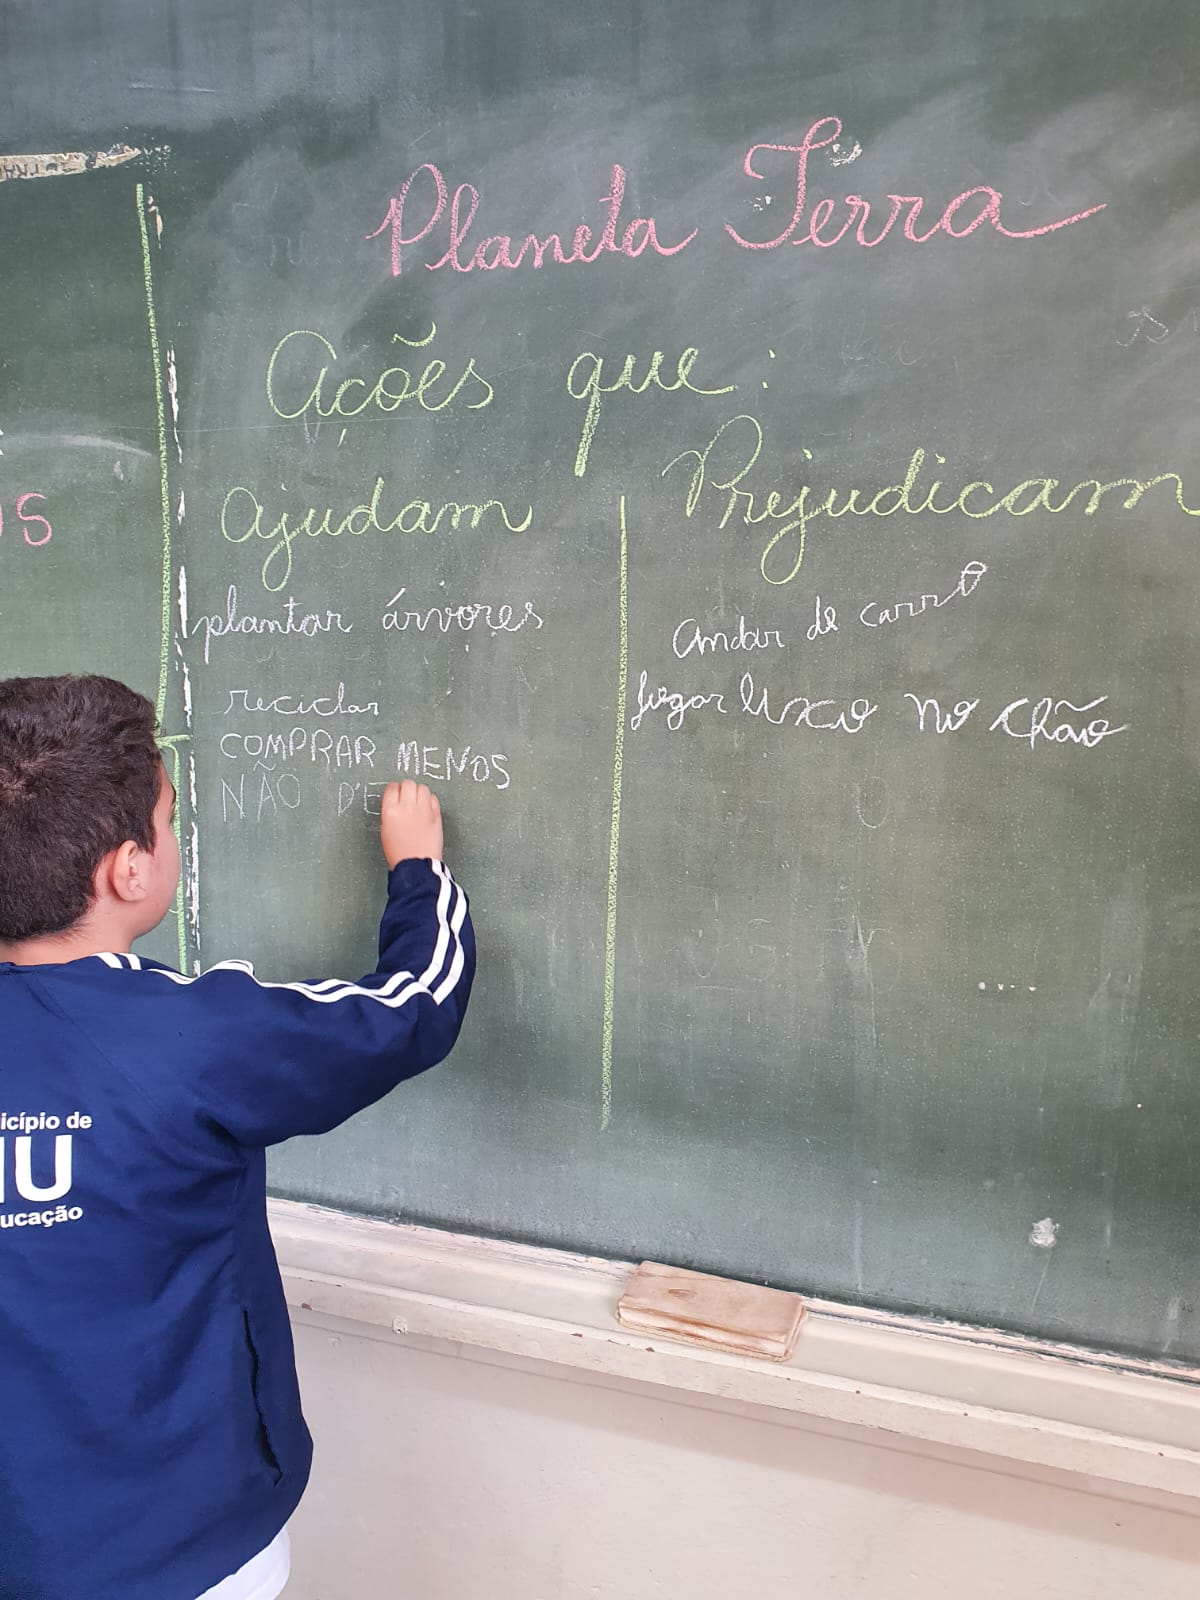 Planeta Terra
Ações que:
Ajudam
Prejudicam
plantar árvores
reciclar
COMPRAR MENOS
NÃO DE
Andar de carro
Jogar lixo no chão
OS
icípio de
IU
ucação